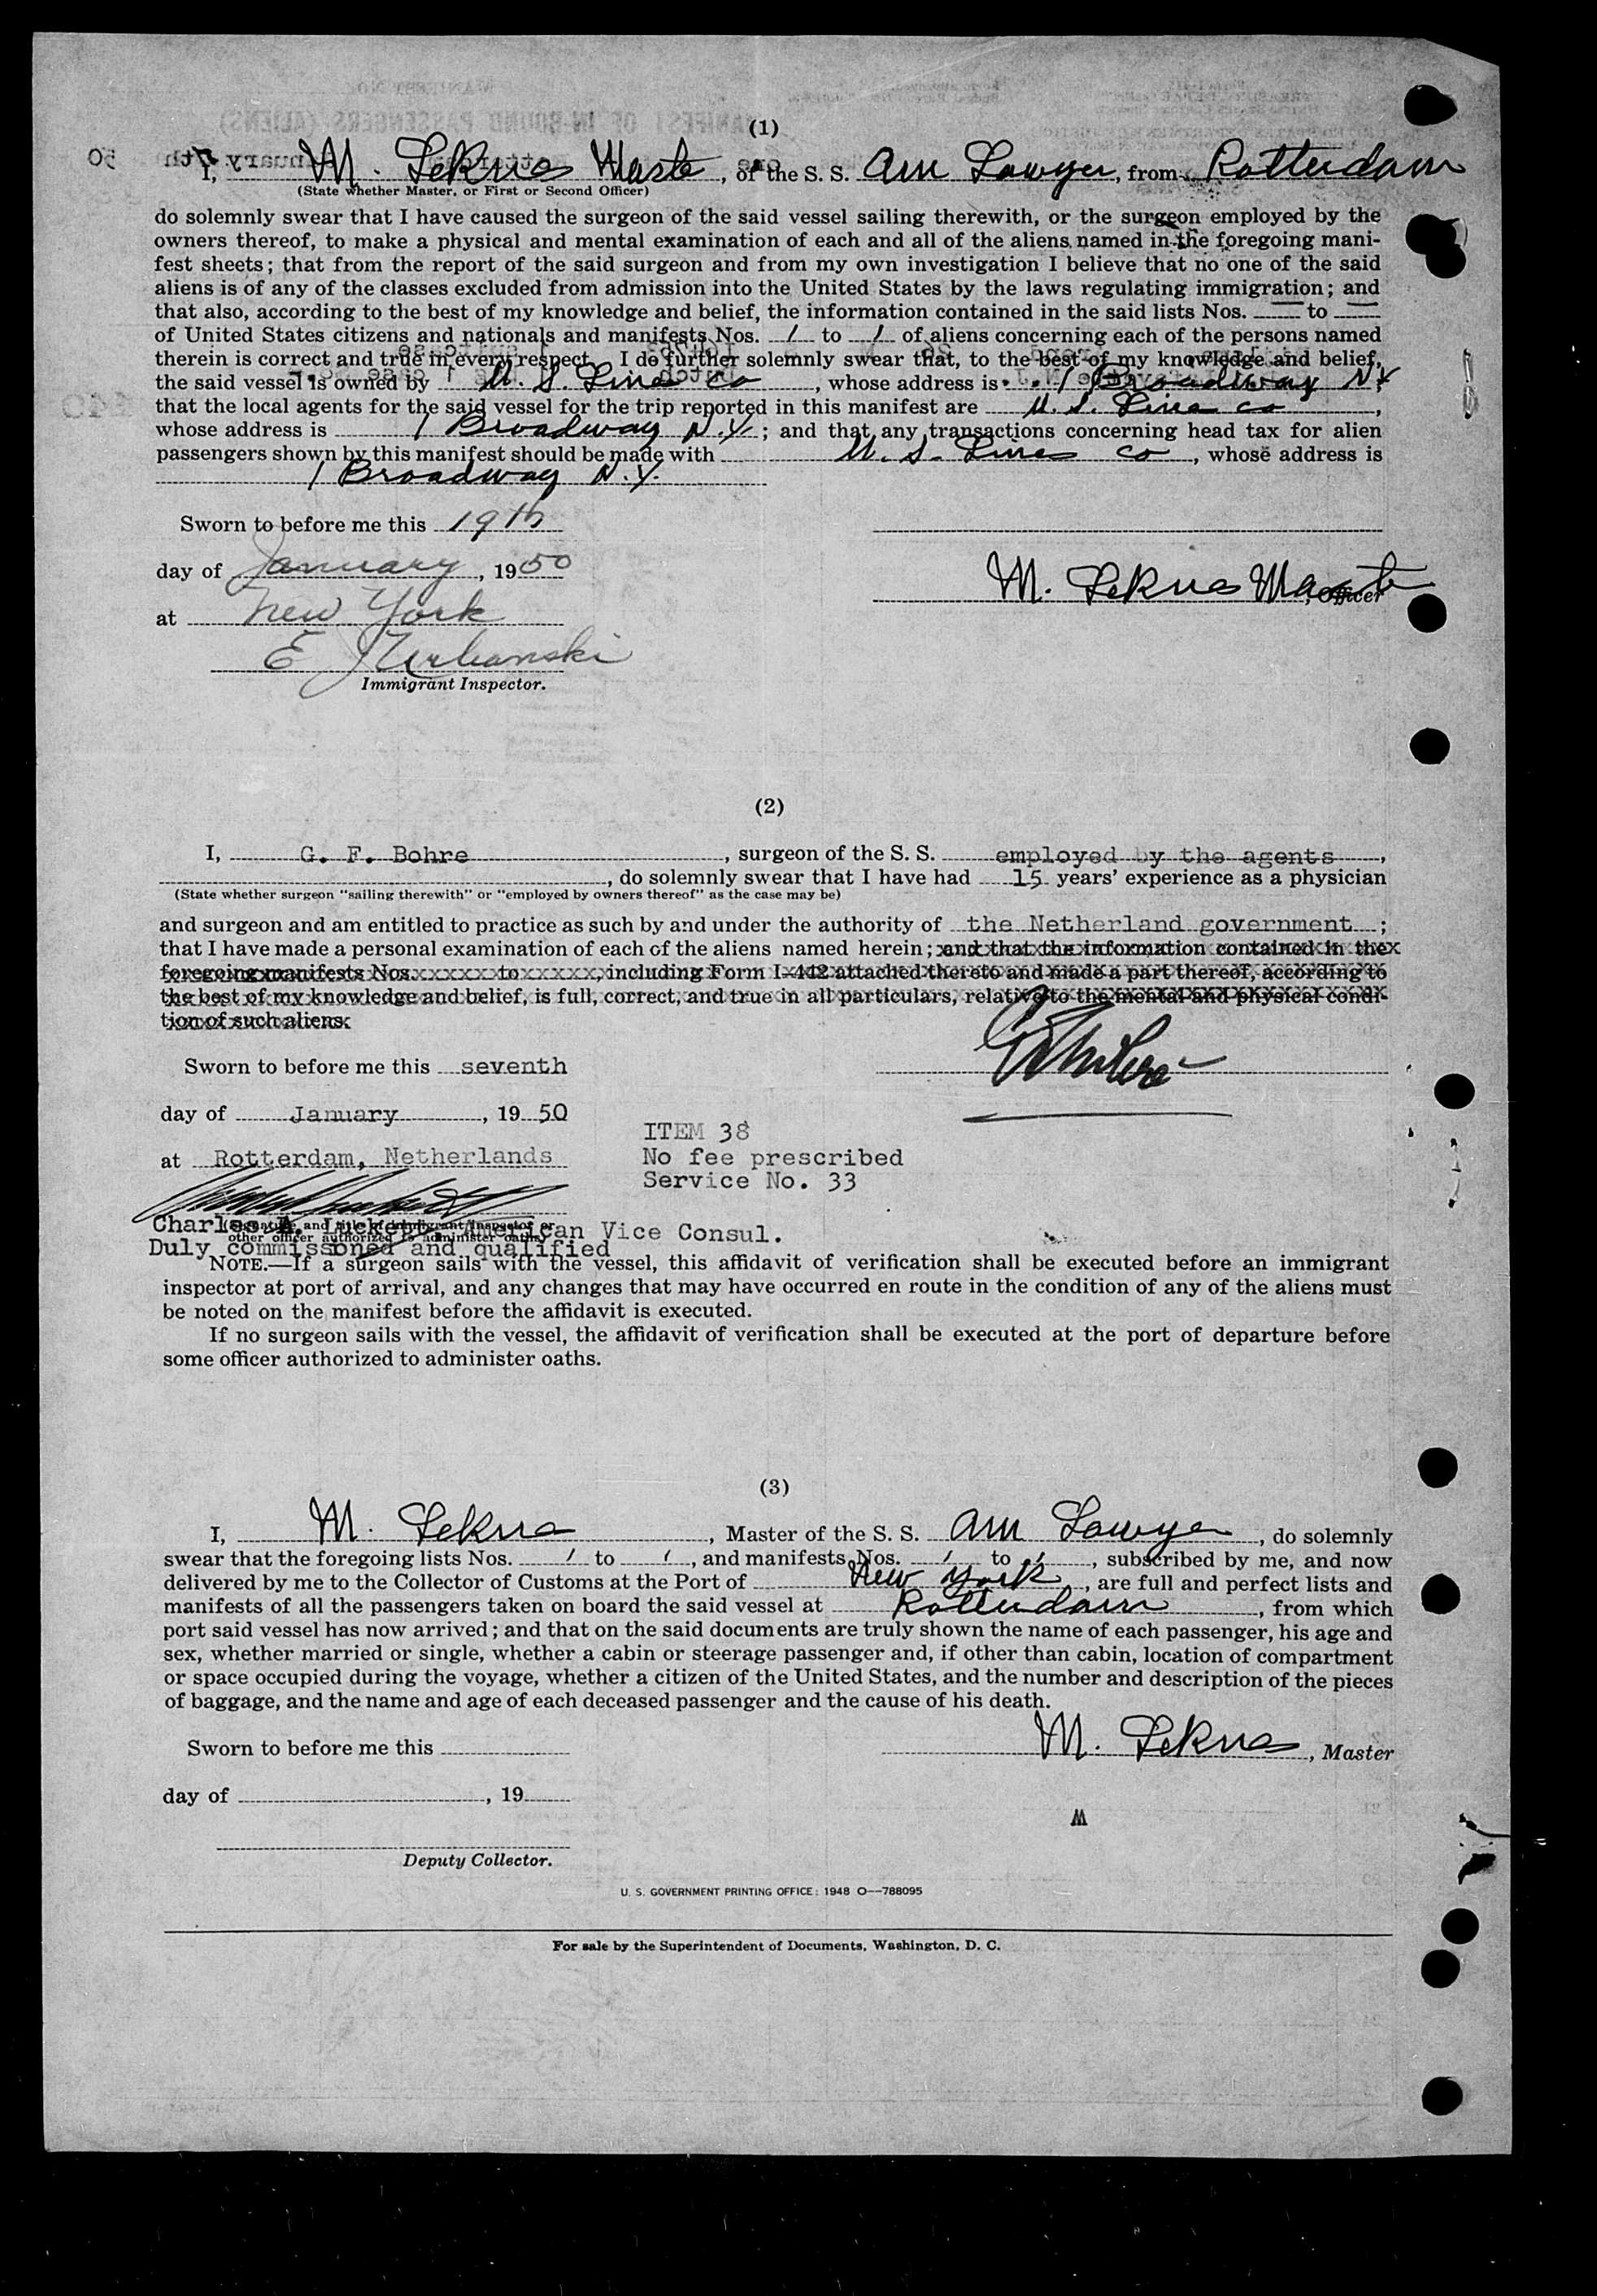 (1)
I, M. Sekus Master, of the S. S. Am Lawyer, from Rotterdam
(State whether Master, or First or Second Officer)
do solemnly swear that I have caused the surgeon of the said vessel sailing therewith, or the surgeon employed by the
owners thereof, to make a physical and mental examination of each and all of the aliens named in the foregoing mani-
fest sheets; that from the report of the said surgeon and from my own investigation I believe that no one of the said
aliens is of any of the classes excluded from admission into the United States by the laws regulating immigration; and
that also, according to the best of my knowledge and belief, the information contained in the said lists Nos. — to —
of United States citizens and nationals and manifests Nos. 1 to 1 of aliens concerning each of the persons named
therein is correct and true in every respect. I do further solemnly swear that, to the best of my knowledge and belief,
the said vessel is owned by U. S. Lines Co, whose address is 1 Broadway N.Y.,
that the local agents for the said vessel for the trip reported in this manifest are U. S. Lines Co,
whose address is 1 Broadway N.Y.; and that any transactions concerning head tax for alien
passengers shown by this manifest should be made with U. S. Lines Co, whose address is
1 Broadway N.Y.
Sworn to before me this 19th
day of January, 1950
M. Sekus Master, Officer
at New York
E J Urbanski
Immigrant Inspector.
(2)
I, G. F. Bohre, surgeon of the S. S. employed by the agents,
, do solemnly swear that I have had 15 years' experience as a physician
(State whether surgeon "sailing therewith" or "employed by owners thereof" as the case may be)
and surgeon and am entitled to practice as such by and under the authority of the Netherland government;
that I have made a personal examination of each of the aliens named herein; and that the information contained in the
foregoing manifests Nos. to , including Form I-442 attached thereto and made a part thereof, according to
the best of my knowledge and belief, is full, correct, and true in all particulars, relative to the mental and physical condi-
tion of such aliens.
Sworn to before me this seventh
day of January, 1950
ITEM 38
at Rotterdam, Netherlands
No fee prescribed
Service No. 33
(Signature and title of immigrant inspector or
other officer authorized to administer oaths)
Charles American Vice Consul.
Duly commissioned and qualified
NOTE.—If a surgeon sails with the vessel, this affidavit of verification shall be executed before an immigrant
inspector at port of arrival, and any changes that may have occurred en route in the condition of any of the aliens must
be noted on the manifest before the affidavit is executed.
If no surgeon sails with the vessel, the affidavit of verification shall be executed at the port of departure before
some officer authorized to administer oaths.
(3)
I, M. Sekus, Master of the S. S. Am Lawyer, do solemnly
swear that the foregoing lists Nos. 1 to 1, and manifests Nos. 1 to 1, subscribed by me, and now
delivered by me to the Collector of Customs at the Port of New York, are full and perfect lists and
manifests of all the passengers taken on board the said vessel at Rotterdam, from which
port said vessel has now arrived; and that on the said documents are truly shown the name of each passenger, his age and
sex, whether married or single, whether a cabin or steerage passenger and, if other than cabin, location of compartment
or space occupied during the voyage, whether a citizen of the United States, and the number and description of the pieces
of baggage, and the name and age of each deceased passenger and the cause of his death.
Sworn to before me this
M. Sekus, Master
day of , 19
Deputy Collector.
U. S. GOVERNMENT PRINTING OFFICE: 1948 O—788095
For sale by the Superintendent of Documents, Washington, D. C.